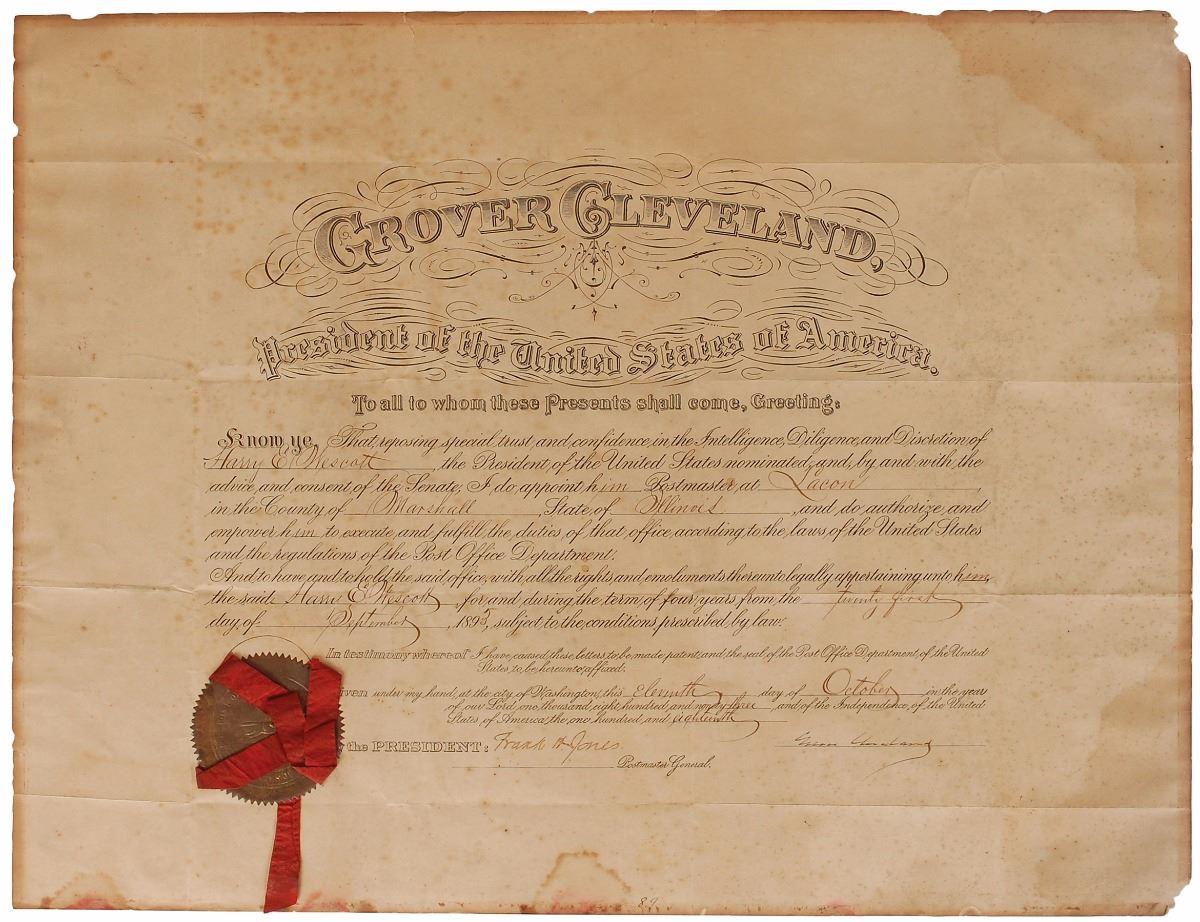 GROVER CLEVELAND,
President of the United States of America.
To all to whom these Presents shall come, Greeting:
Know ye, That, reposing special trust and confidence in the Intelligence, Diligence, and Discretion of
Harry E. Wescott, the President of the United States nominated, and, by and with the
advice and consent of the Senate, I do appoint him Postmaster, at Lacon
in the County of Marshall State of Illinois, and do authorize and
empower him to execute and fulfill the duties of that office according to the laws of the United States
and the regulations of the Post Office Department.
And to have and to hold the said office, with all the rights and emoluments thereunto legally appertaining unto him
the said Harry E. Wescott, for and during the term of four years from the twenty first
day of September, 1893, subject to the conditions prescribed by law.
In testimony whereof I have caused these letters to be made patent, and the seal of the Post Office Department of the United
States to be hereunto affixed.
iven under my hand, at the city of Washington, this Eleventh day of October in the year
of our Lord one thousand eight hundred and ninety three, and of the Independence of the United
States of America the one hundred and eighteenth
y the PRESIDENT: Frank H Jones Grover Cleveland
Postmaster General.
89